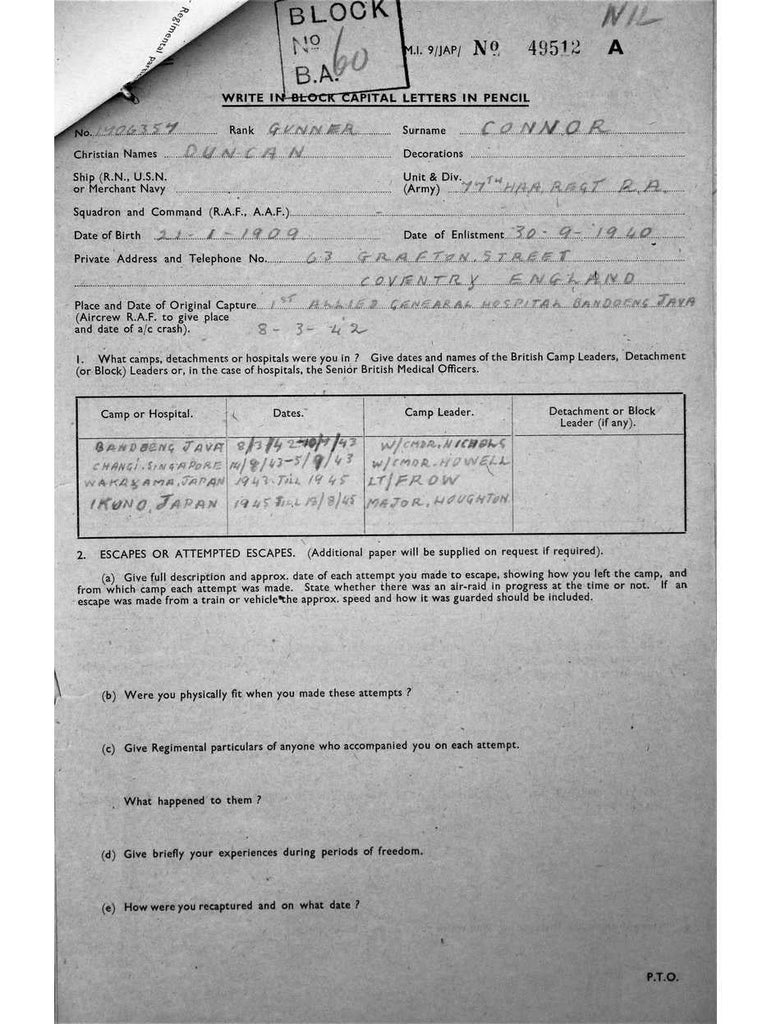 Regimental
BLOCK
NIL
No 60
M.I. 9/JAP/ No. 49512 A
B.A.
WRITE IN BLOCK CAPITAL LETTERS IN PENCIL
No. Rank GUNNER Surname CONNOR
Christian Names DUNCAN Decorations
Ship (R.N., U.S.N. Unit & Div.
or Merchant Navy (Army) 77TH HAA REGT R.A.
Squadron and Command (R.A.F., A.A.F.) -
Date of Birth 21-1-1909 Date of Enlistment 30-9-1940
Private Address and Telephone No. 63 GRAFTON STREET
COVENTRY ENGLAND
Place and Date of Original Capture 1ST ALLIED GENEARAL HOSPITAL BANDOENG JAVA
(Aircrew R.A.F. to give place
and date of a/c crash). 8-3-42
1. What camps, detachments or hospitals were you in ? Give dates and names of the British Camp Leaders, Detachment
(or Block) Leaders or, in the case of hospitals, the Senior British Medical Officers.
Camp or Hospital. Dates. Camp Leader. Detachment or Block
Leader (if any).
BANDOENG JAVA 8/3/42 W/CMDR. NICHOLS
CHANGI. SINGAPORE 14/8/43-5/9/43 W/CMDR. HOWELL
WAKAYAMA, JAPAN 1943 TILL 1945 LT/FROW
IKUNO, JAPAN 1945 TILL /8/45 MAJOR, HOUGHTON
2. ESCAPES OR ATTEMPTED ESCAPES. (Additional paper will be supplied on request if required).
(a) Give full description and approx. date of each attempt you made to escape, showing how you left the camp, and
from which camp each attempt was made. State whether there was an air-raid in progress at the time or not. If an
escape was made from a train or vehicle the approx. speed and how it was guarded should be included.
(b) Were you physically fit when you made these attempts ?
(c) Give Regimental particulars of anyone who accompanied you on each attempt.
What happened to them ?
(d) Give briefly your experiences during periods of freedom.
(e) How were you recaptured and on what date ?
P.T.O.